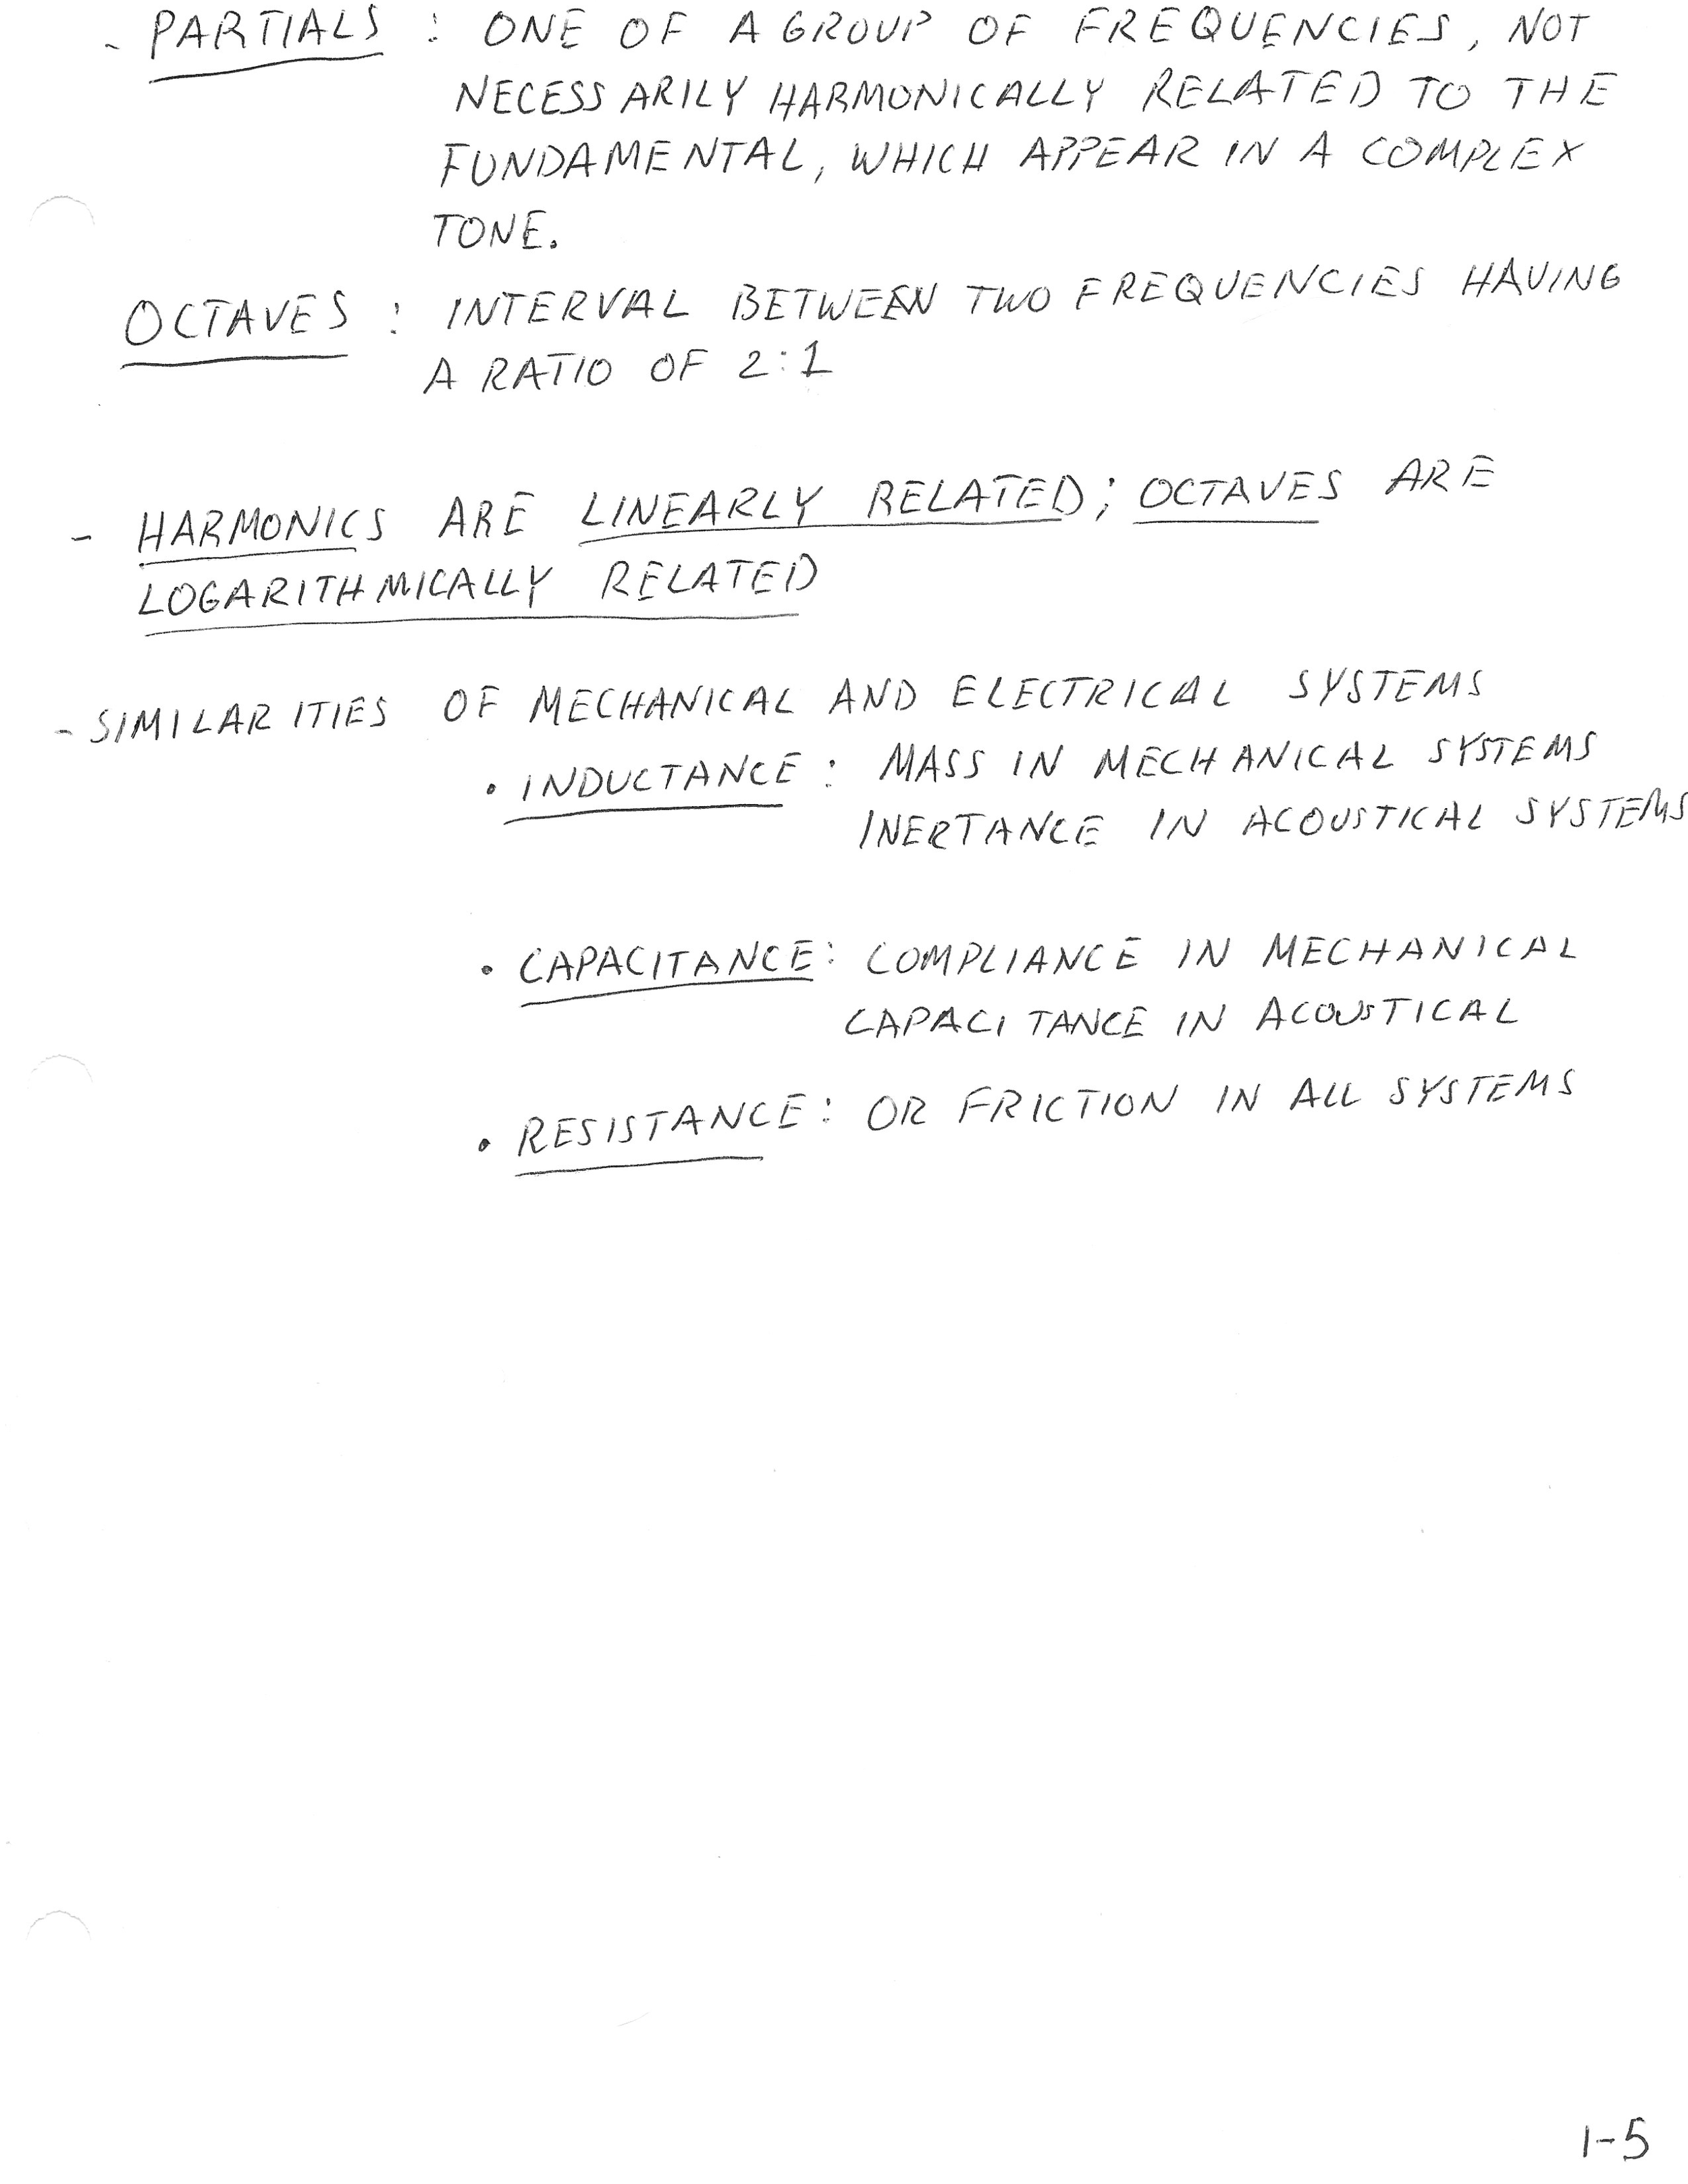 - PARTIALS : ONE OF A GROUP OF FREQUENCIES, NOT
NECESSARILY HARMONICALLY RELATED TO THE
FUNDAMENTAL, WHICH APPEAR IN A COMPLEX
TONE.
OCTAVES : INTERVAL BETWEEN TWO FREQUENCIES HAVING
A RATIO OF 2:1
- HARMONICS ARE LINEARLY RELATED; OCTAVES ARE
LOGARITHMICALLY RELATED
- SIMILARITIES OF MECHANICAL AND ELECTRICAL SYSTEMS
• INDUCTANCE : MASS IN MECHANICAL SYSTEMS
INERTANCE IN ACOUSTICAL SYSTEMS
• CAPACITANCE : COMPLIANCE IN MECHANICAL
CAPACITANCE IN ACOUSTICAL
• RESISTANCE : OR FRICTION IN ALL SYSTEMS
1-5